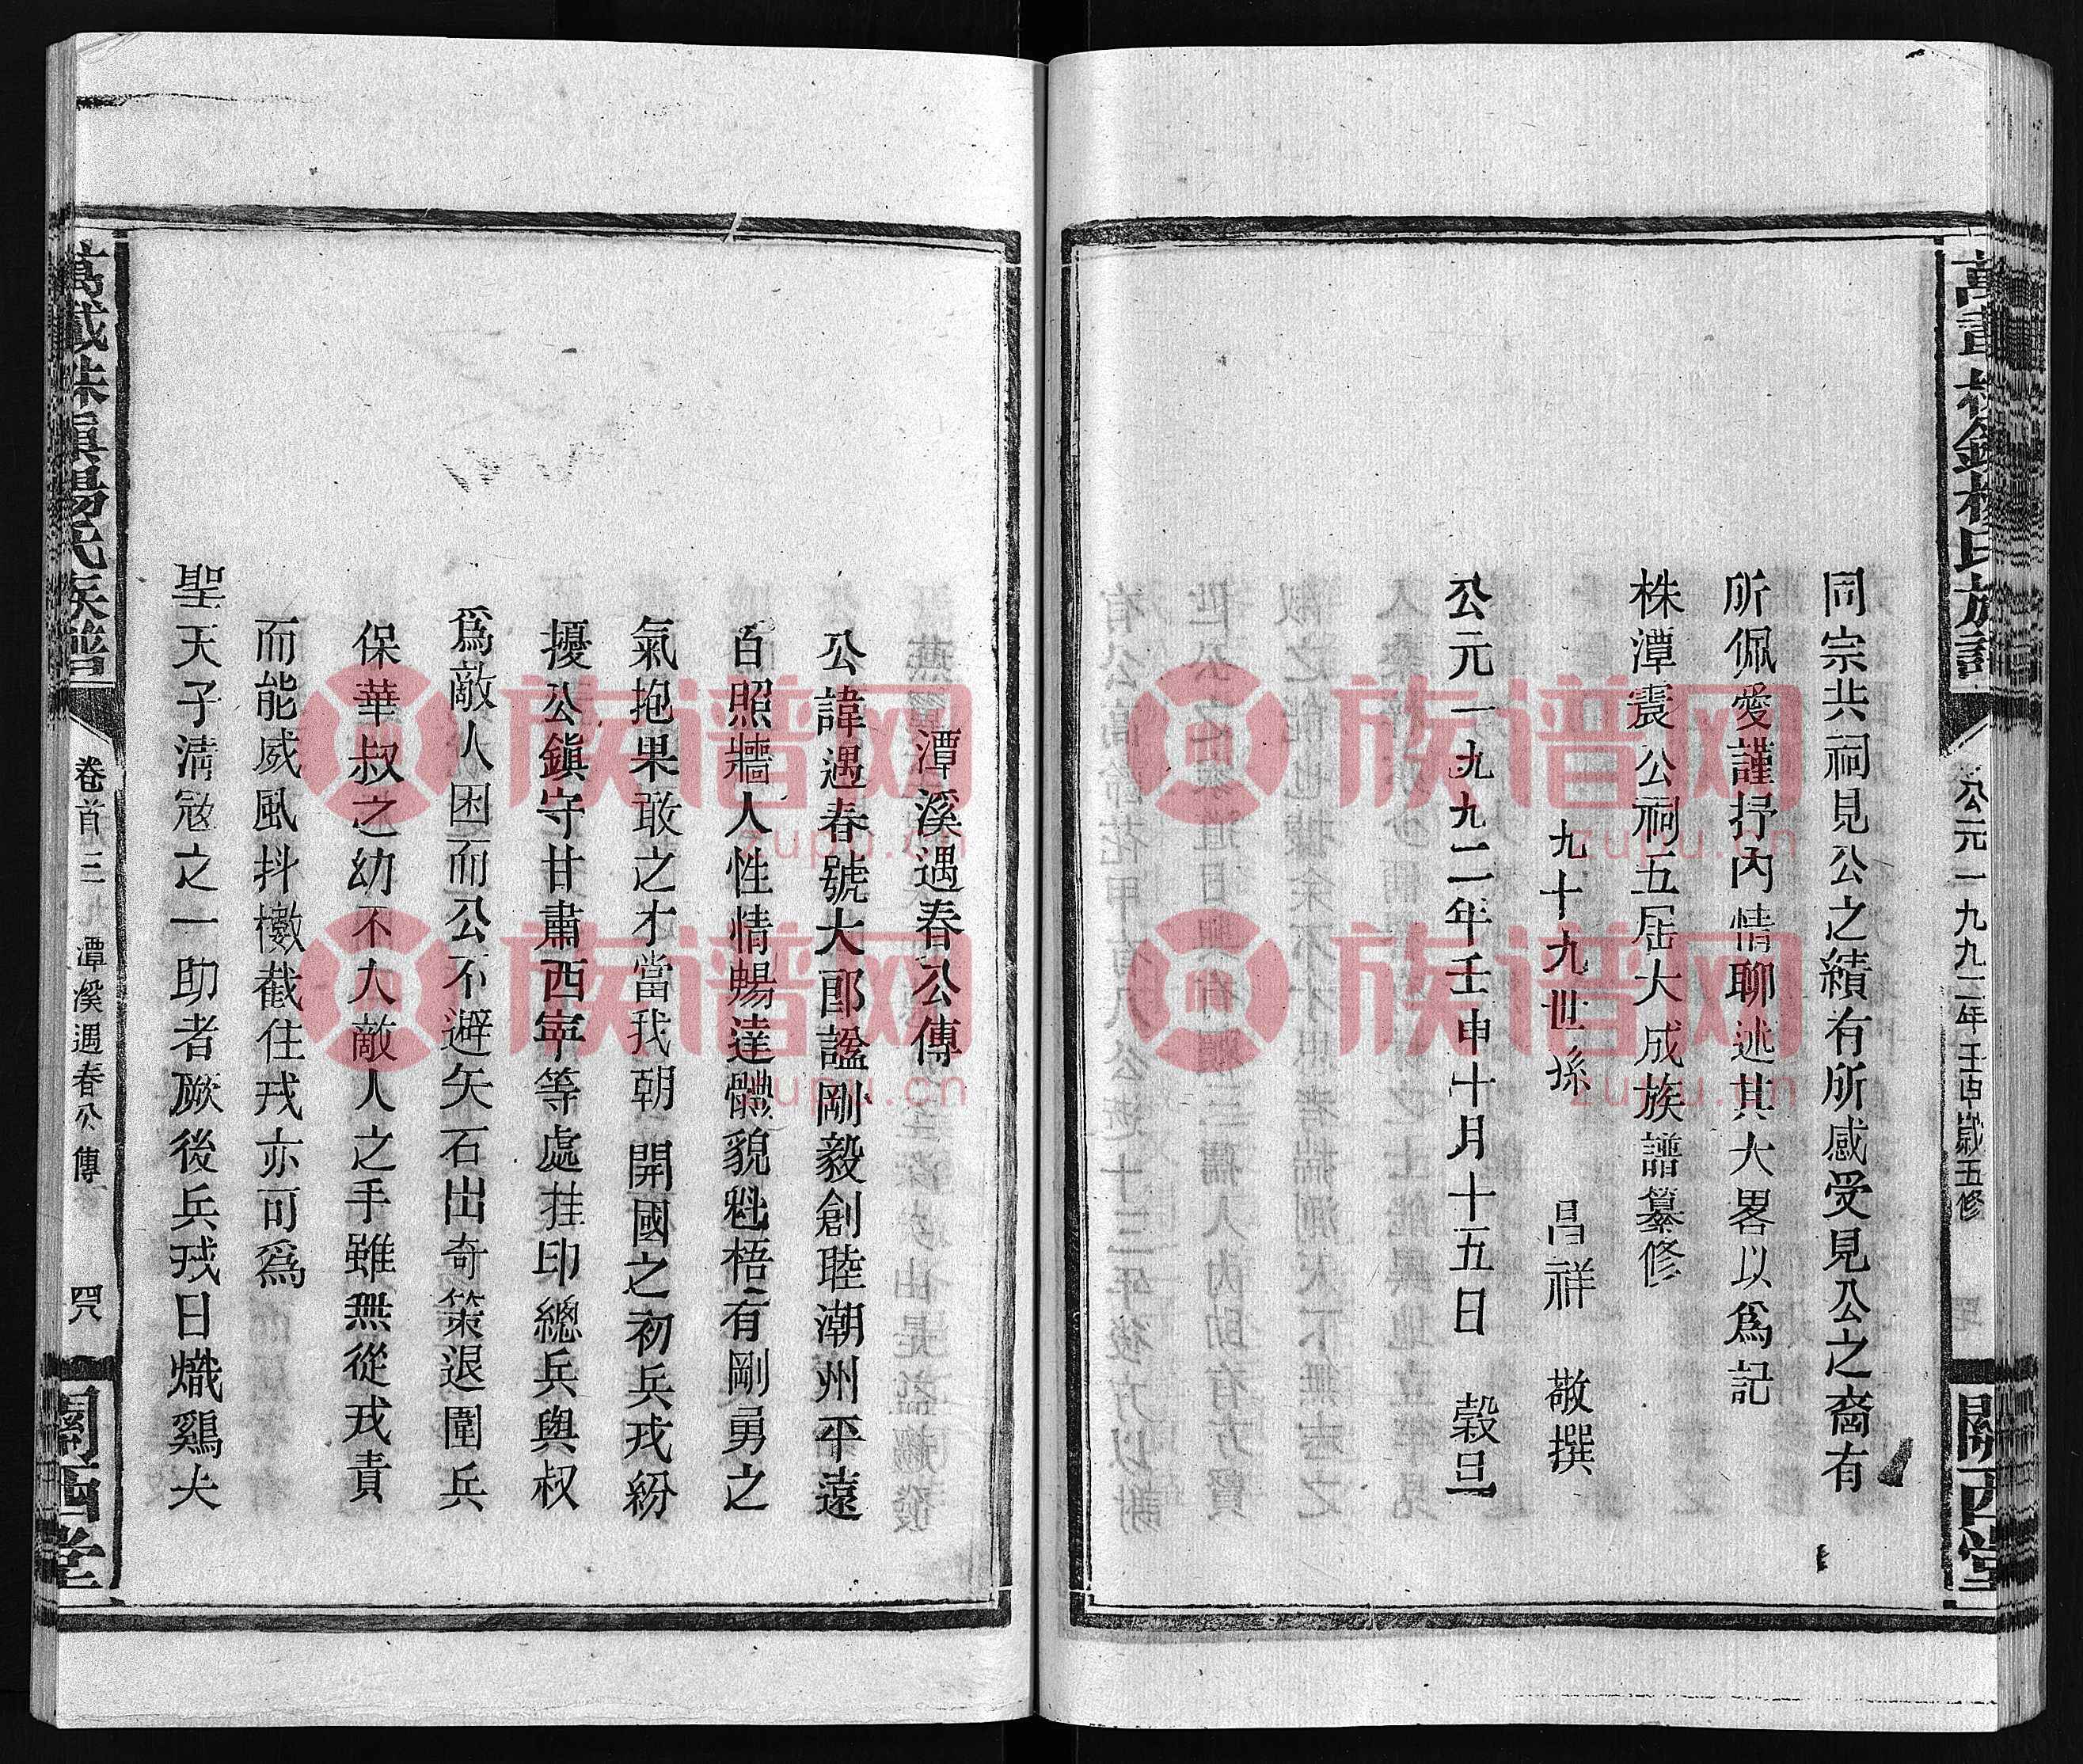 公元一九九二年壬申歲五修
關西堂
同宗共祠見公之績有所感受見公之裔有
所佩愛謹抒內情聊述其大畧以為記
株潭震公祠五屆大成族譜纂修
九十九世孫 昌祥 敬撰
公元一九九二年壬申十月十五日 穀旦
潭溪遇春公傳
公諱遇春號大郎謚剛毅創睦潮州平遠
百照牆人性情暢達體貌魁梧有剛勇之
氣抱果敢之才當我朝開國之初兵戎紛
擾公鎮守甘肅西寧等處挂印總兵與叔
為敵人困而公不避矢石出奇策退圍兵
保華叔之幼不大敵人之手雖無從戎責
而能威風抖擻截住戎亦可為
聖天子清寇之一助者厥後兵戎日熾鷄夫
萬載株潭楊氏族譜
卷首三九 潭溪遇春公傳
關西堂
族谱网
zupu.cn
族谱网
zupu.cn
族谱网
zupu.cn
族谱网
zupu.cn